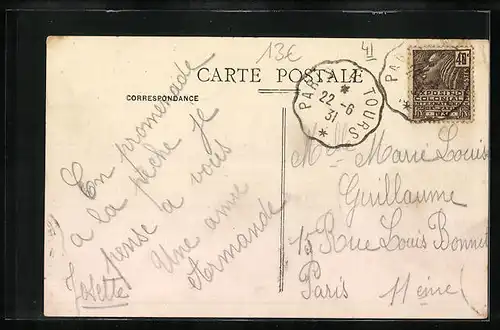 13€
41
CARTE POSTALE
CORRESPONDANCE
PARIS A TOURS
22 -6
31
40c
EXPOSITION
COLONIALE
INTERNATIONALE
En promenade
a la pêche je
pense a vous
Une amie
Armande
Josette
Melle Marie Louis
Guillaume
15 Rue Louis Bonnet
Paris 11eme